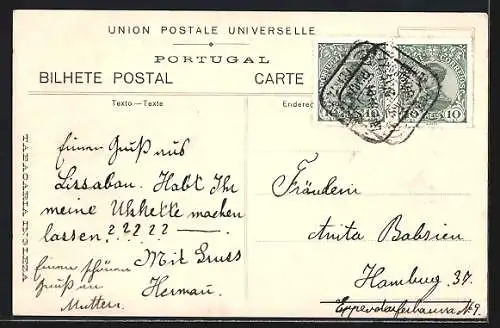 UNION POSTALE UNIVERSELLE
PORTUGAL
BILHETE POSTAL
CARTE
Texto — Texte
Endereç
CORREIOS
10
10
TABACARIA INGLEZA
Einen Gruß aus
Lissabon. Habt Ihr
meine Uhrkette machen
lassen? ? ? ? ? —
Mit Gruss
Herman.
Einen schönen
Gruß an
Mutter.
Fräulein
Anita Babsien
Hamburg 37.
Eppendorferbaum № 9.